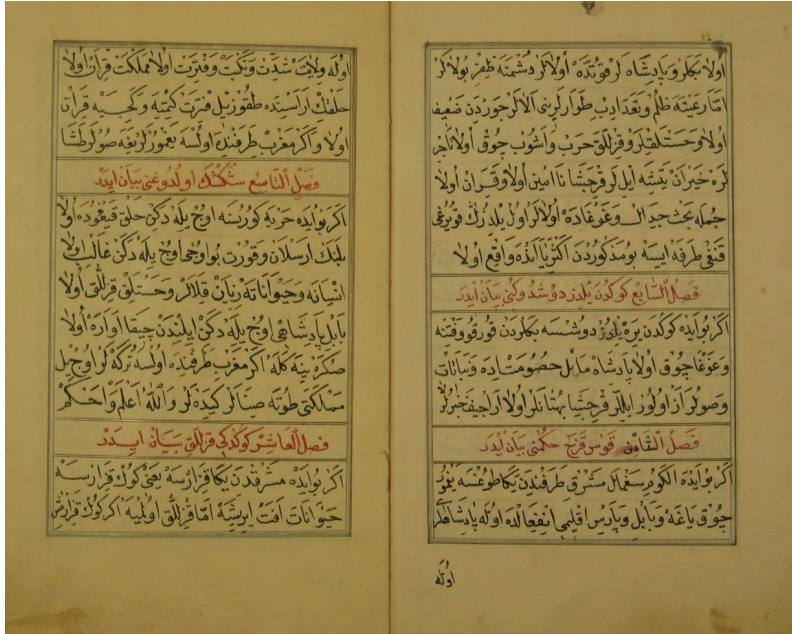 اولا بكلر و پادشاه لر قوتده اولالر دشمنه ظفر بولالر
امّا رعيّته ظلم و تعدّ ايدب طوار لرينى آلالر جوردن ضعيف
اولا و خستلقلر و قزللق حرب و آشوب چوق اولا تاجر
لره خيران يتيشه ايل لر قرجشا نا امين اولا و قران اولا
جمله بحث جدال و غوغاده اولالر اول يلدرك قويرغى
قنغى طرفه ايسه بو مذكوردن اكثر يا آنده واقع اولا
فصل السّابع كوكدن يلدز دوشدوكنى بيان ايدر
اكر بو آيده كوكدن يره يلدز دوشسه بكلردن قورقو و فتنه
و غوغا چوق اولا پادشاه مايل خصومتاده و نباتات
و صولر آز اولور ايللر قرجشا بهتانلر اولا اراجيف خبرلر
فصل الثّامن قوس قزح حكمنى بيان ايدر
اكر بو آيده الكوم سغمال مشرق طرفندن يكا طوغسه يغمور
چوق ياغه و بابل و پارس اقليمى انفعالده اوله پادشاهلر
اوله
اوله ولايت شدّت و نكبت و فترت اولا مملكت قران اولا
خلقك آراسنده طقوز ييل فترت كيمته و كجيه قران
اولا و اكر مغرب طرفنده اولسه يغمورلر يغه صولر طشا
فصل التّاسع سُنكُشك اولدوغنى بيان ايدر
اكر بو آيده حربه كورينسه اوچ ييله دكن خلق قيغوده اولا
پلنك ارسلان و قورت بو اوحى اوچ ييله دكن غالب اولا
انسانه و حيواناته زيان قلالر و خستلق قزللق اولا
بابل پادشاهى اوچ ييله دكن ايلندن چيقا آواره اولا
صكره ينه كله اكر مغرب طرفنده اولسه تركه لر اوچ ييل
مملكتى طوته صنالر كيده لر والله اعلم و احكم
فصل العاشر كوكدكى قزللق بيان ايدر
اكر بو آيده مشرقدن يكا قزارسه يعنى كوك قزارسه
حيوانات آفت ايريشه امّا قزللق اولميه اكر كوك قزارش